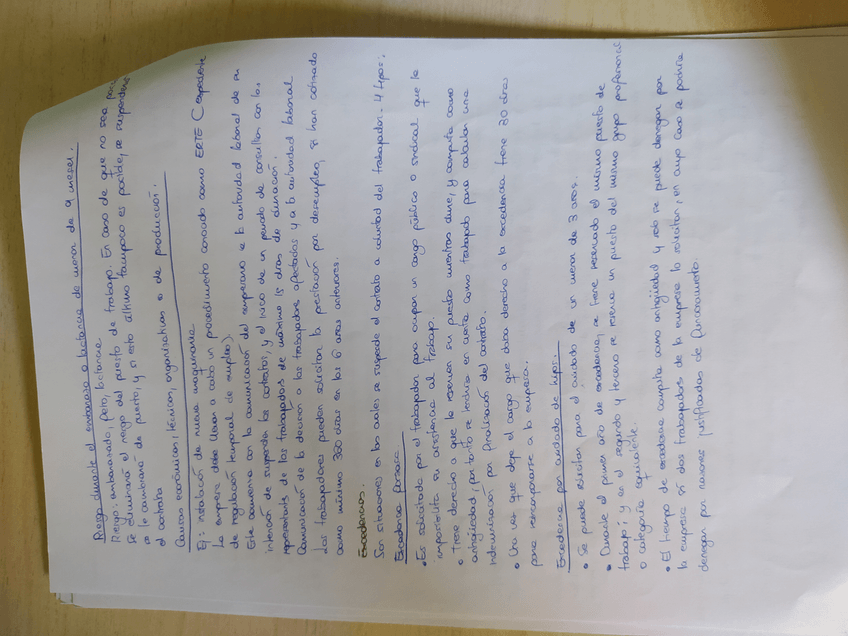 Riesgo durante el embarazo o lactancia de menor de 9 meses.
Riesgo: embarazada, feto, lactancia.
Se eliminará el riesgo del puesto de trabajo. En caso de que no sea
se le cambiará de puesto, y si esto último tampoco es posible, se suspenderá
el contrato
Causas económicas, técnicas, organizativas o de producción.
Ej: instalación de nueva maquinaria
La empresa debe llevar a cabo un procedimiento conocido como ERTE (expediente
de regulación temporal de empleo).
Este comienza con la comunicación del empresario a la autoridad laboral de su
intención de suspender los contratos, y el inicio de un periodo de consultas con los
representantes de los trabajadores de máximo 15 días de duración.
Comunicación de la decisión a los trabajadores afectados y a la autoridad laboral
Los trabajadores pueden solicitar la prestación por desempleo, si han cotizado
como mínimo 360 días en los 6 años anteriores.
Excedencias.
Son situaciones en las cuales se suspende el contrato a voluntad del trabajador. 4 tipos:
Excedencia forzosa
• Es solicitada por el trabajador para ocupar un cargo público o sindical que le
imposibilita su asistencia al trabajo.
• Tiene derecho a que le reserven su puesto mientras dure, y computa como
antigüedad, por tanto se tendrá en cuenta como trabajado para calcular una
indemnización por finalización del contrato.
• Una vez que deje el cargo que daba derecho a la excedencia tiene 30 días
para reincorporarse a la empresa.
Excedencia por cuidado de hijos:
• Se puede solicitar para el cuidado de un menor de 3 años.
• Durante el primer año de excedencia, se tiene reservado el mismo puesto de
trabajo; y en el segundo y tercero se reserva un puesto del mismo grupo profesional
o categoría equivalente.
• El tiempo de excedencia computa como antigüedad y solo se puede denegar por
la empresa si dos trabajadores de la empresa lo solicitan, en cuyo caso se podría
denegar por razones justificadas de funcionamiento.